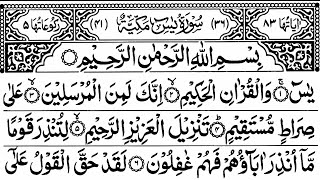 اٰیَاتُهَا ٨٣ (٣٦) سُوْرَةُ يٰسٓ مَكِّيَّةٌ (٤١) رُكُوْعَاتُهَا ٥
بِسْمِ اللّٰهِ الرَّحْمٰنِ الرَّحِيْمِ
يٰسٓ ۝١ وَالْقُرْاٰنِ الْحَكِيْمِ ۝٢ اِنَّكَ لَمِنَ الْمُرْسَلِيْنَ ۝٣ عَلٰى
صِرَاطٍ مُّسْتَقِيْمٍ ۝٤ تَنْزِيْلَ الْعَزِيْزِ الرَّحِيْمِ ۝٥ لِتُنْذِرَ قَوْمًا
مَّاۤ اُنْذِرَ اٰبَآؤُهُمْ فَهُمْ غٰفِلُوْنَ ۝٦ لَقَدْ حَقَّ الْقَوْلُ عَلٰٓى